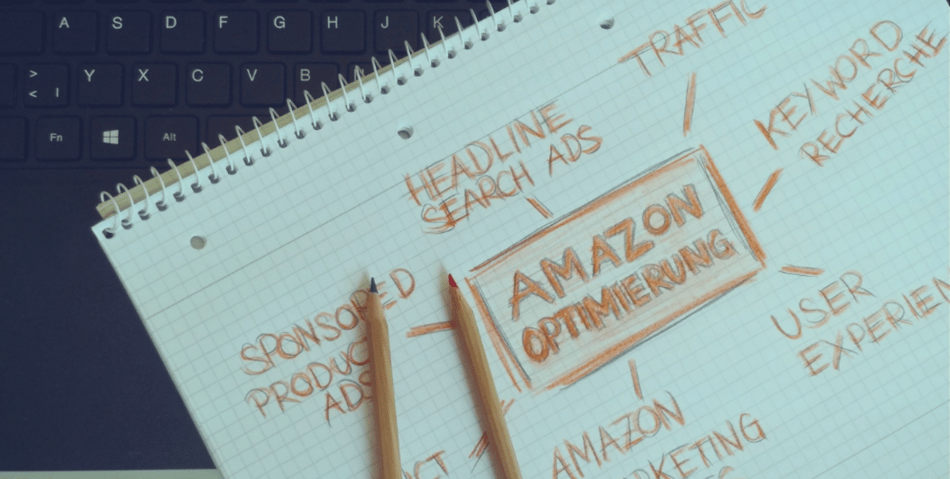 A S D F G H J K
> < | Y X C V B
Fn Alt
TRAFFIC
KEYWORD
RECHERCHE
HEADLINE
SEARCH ADS
AMAZON
OPTIMIERUNG
SPONSORED
PRODUCT
ADS
USER
EXPERIEN
AMAZON
RKETING
CT